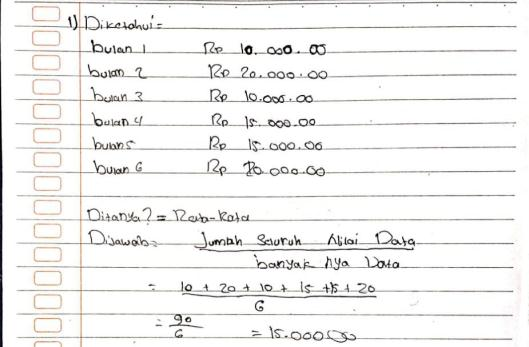 1) Diketahui =
bulan 1 Rp 10.000.00
bulan 2 Rp 20.000.00
bulan 3 Rp 10.000.00
bulan 4 Rp 15.000.00
bulan 5 Rp 15.000.00
bulan 6 Rp 20.000.00
Ditanya? = Rata-Rata
Dijawab = Jumlah Seluruh Nilai Data
banyak Nya Data
= 10 + 20 + 10 + 15 + 15 + 20
6
= 90
6 = 15.000.00